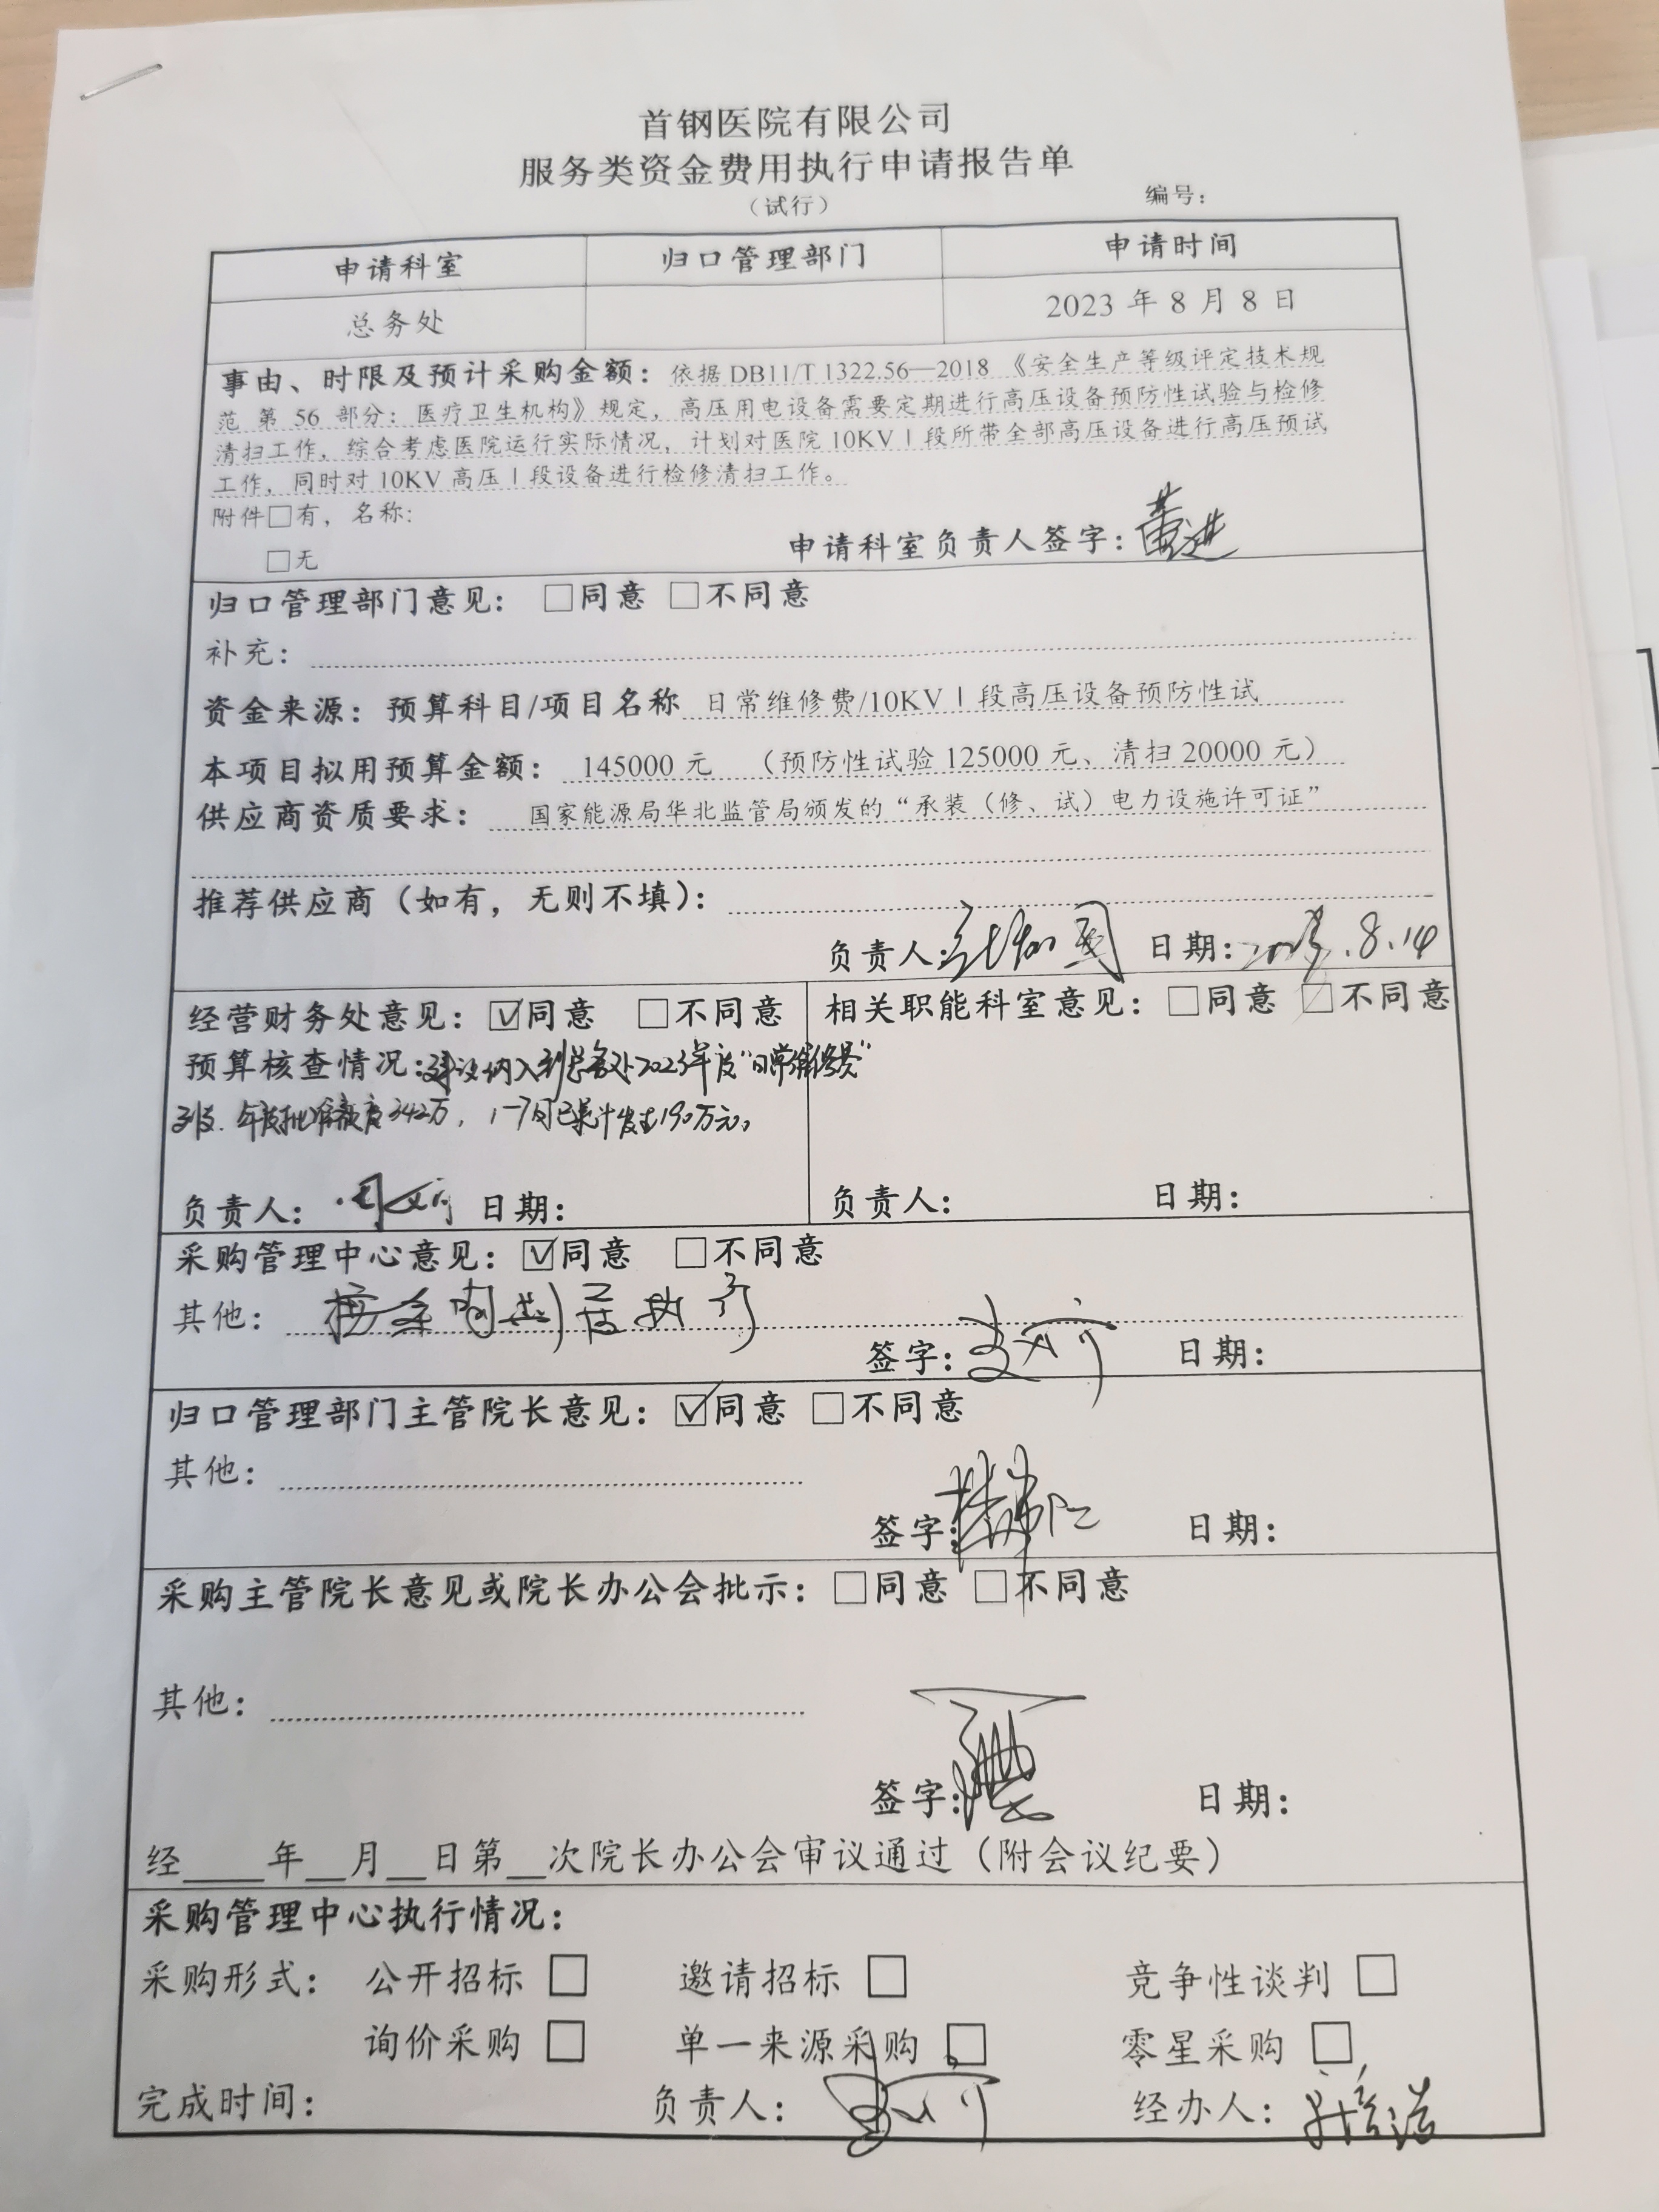 首钢医院有限公司
服务类资金费用执行申请报告单
（试行）
编号：
申请科室 归口管理部门 申请时间
总务处 2023 年 8 月 8 日
事由、时限及预计采购金额：依据 DB11/T 1322.56—2018 《安全生产等级评定技术规
范 第 56 部分：医疗卫生机构》规定，高压用电设备需要定期进行高压设备预防性试验与检修
清扫工作，综合考虑医院运行实际情况，计划对医院 10KV Ⅰ 段所带全部高压设备进行高压预试
工作，同时对 10KV 高压 Ⅰ 段设备进行检修清扫工作。
附件□有，名称：
□无
申请科室负责人签字：董进
归口管理部门意见： □同意 □不同意
补充：
资金来源：预算科目/项目名称 日常维修费/10KV Ⅰ 段高压设备预防性试
本项目拟用预算金额： 145000 元 （预防性试验 125000 元、清扫 20000 元）
供应商资质要求： 国家能源局华北监管局颁发的“承装（修、试）电力设施许可证”
推荐供应商（如有，无则不填）：
负责人： 日期：2023.8.14
经营财务处意见：☑同意 □不同意 相关职能科室意见：□同意 □不同意
预算核查情况：建议纳入到总务处2023年度“日常维修费”
列支．年度批准额度342万，1-7月已累计发生190万元。
负责人： 日期： 负责人： 日期：
采购管理中心意见：☑同意 □不同意
其他： 按采购制度执行
签字： 日期：
归口管理部门主管院长意见：☑同意 □不同意
其他：
签字： 日期：
采购主管院长意见或院长办公会批示：□同意 □不同意
其他：
签字： 日期：
经____年__月__日第__次院长办公会审议通过（附会议纪要）
采购管理中心执行情况：
采购形式： 公开招标 □ 邀请招标 □ 竞争性谈判 □
询价采购 □ 单一来源采购 □ 零星采购 □
完成时间： 负责人： 经办人：